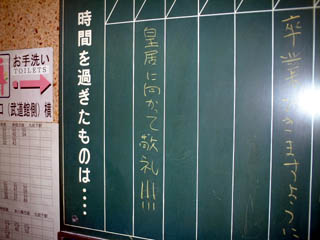 卒業できますように
皇居に向かて敬礼!!!
時間を過ぎたものは・・・・
お手洗い
TOILETS
口(武道館側)横